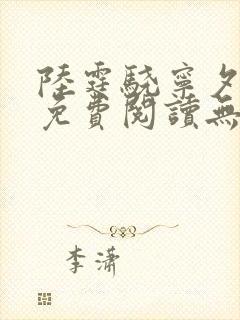 陸霆驍寧夕
免費閱讀無
李潇